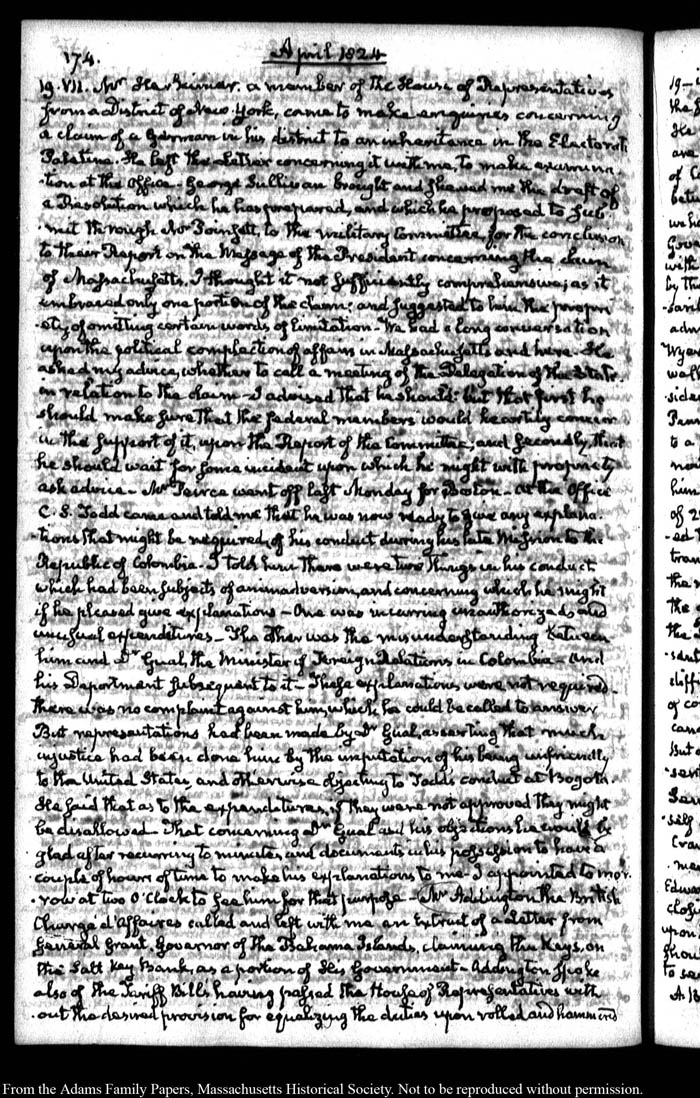 174.
April 1824
19. VII. Mr Herkimer. a member of the House of Representatives
from a District of New-York, came to make enquiries concerning
a claim of a German in his district to an inheritance in the Electorate
Palatine. He left the Letter concerning it with me, to make examina-
-tion at the Office. George Sullivan brought and shewed me the draft of
a Resolution which he has prepared, and which he proposed to sub
-mit through Mr Poinsett, to the military Committee, for the conclusion
to their Report on the Message of the President concerning the claim
of Massachusetts. I thought it not sufficiently comprehensive; as it
embraced only one portion of the claim; and suggested to him the propri
-ety of omitting certain words of limitation. We had a long conversation
upon the political complection of affairs in Massachusetts and here. He
asked my advice, whether to call a meeting of the Delegation of the State
in relation to the claim. I advised that he should: but that first he
should make sure that the federal members would heartily concur
in the support of it, upon the Report of the Committee, and secondly, that
he should wait for some incident upon which he might with propriety
ask advice. Mr Peirce went off last Monday for Boston. At the Office
C. S. Todd came and told me that he was now ready to give any explana-
-tions that might be required, of his conduct during his late Mission to the
Republic of Colombia. I told him there were two things in his conduct
which had been subjects of animadversion, and concerning which he might
if he pleased give explanations. One was incurring unauthorized and
unusual expenditures. The other was the misunderstanding between
him and Dr Gual, the Minister of Foreign Relations in Colombia. and
his Deportment subsequent to it. These explanations were not required.
there was no complaint against him, which he could be called to answer
But representations had been made by Dr Gual, asserting that much
injustice had been done him by the imputation of his being unfriendly
to the United States, and otherwise objecting to Todd's conduct at Bogota
He said that as to the expenditures, if they were not approved they might
be disallowed. That concerning Dr Gual and his objections he would be
glad after recurring to minutes, and documents in his possession to have a
couple of hours of time to make his explanations to me. I appointed to mor-
-row at two O'Clock to see him for that purpose. Mr Addington the British
Chargé d'Affaires called and left with me an Extract of a Letter from
General Grant, Governor of the Bahama Islands, claiming the Keys, on
the Salt Key Bank, as a portion of His Government. Addington spoke
also of the Tariff Bills having passed the House of Representatives with
-out the desired provision for equalizing the duties upon rolled and hammered
From the Adams Family Papers, Massachusetts Historical Society. Not to be reproduced without permission.